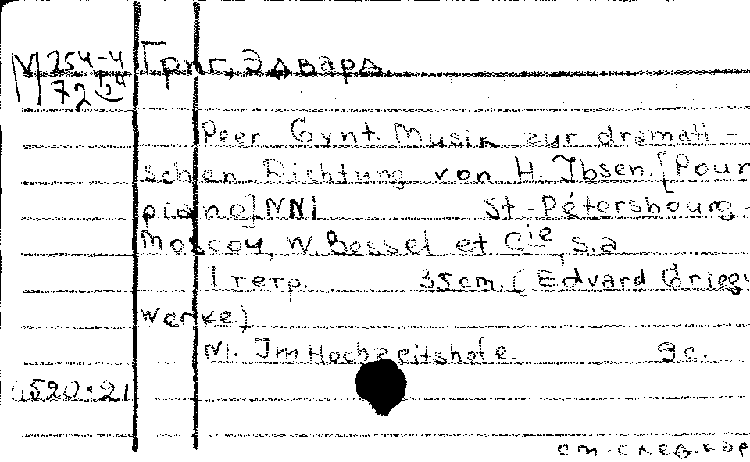 М 254-4 Григ, Эдвард.
72
Peer Gynt. Musik zur dramati-
schen Dichtung von H. Ibsen. [Pour
piano] NN1 St-Pétersbourg-
Moscou, W. Bessel et Cie, s.a
1 тетр. 35 cm. (Edvard Griegs
Werke)
N1. Im Hochzeitshofe. 9 с.
520-21
см. след. кар